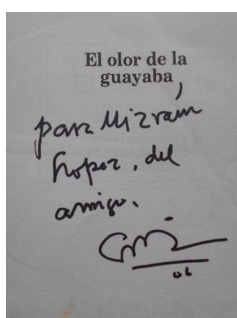 El olor de la
guayaba,
para Mizraím
López, del
amigo.
06